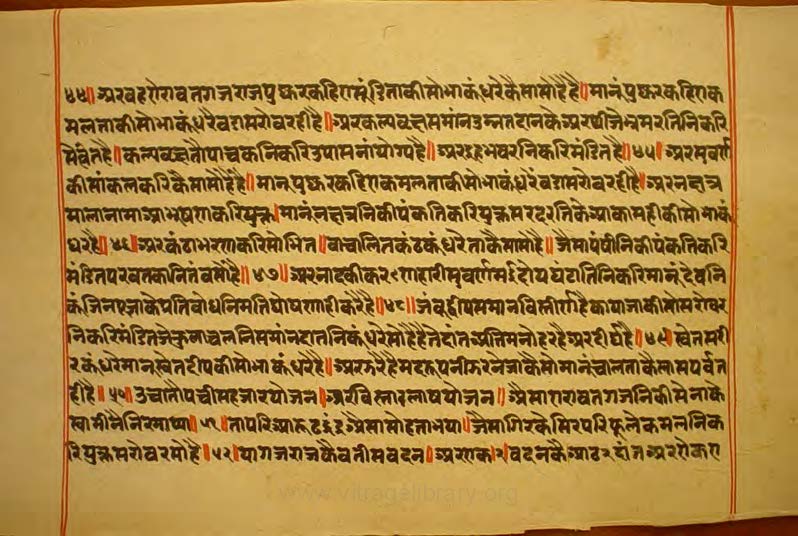 ४४॥ अर वह ऐरावत गजराज पुष्कर कहिए सूंडि ताकी सोभाकूं धरै कैसा सोहै है॥ मानूं पुष्कर कहिए क
मल ताकी सोभाकूं धरै बडा सरोवर ही है॥ अर कल्पवृक्ष समांन उन्नत दानके अरथी जे भ्रमर तिनिकरि
सेवत है॥ कल्पवृक्ष तौ पाचकनिकरि उपासना योग्य है॥ अर भवरनिकरि मंडित है॥४५॥ अर सुवर्ण
की सांकलकरि कैसा सोहै है॥ मानू पुष्कर कहिए कमल ताकी सोभाकूं धरै बडा सरोवर ही है॥ अर नक्षत्र
माला नामा आभूषण करि युक्त॥ मानूं नक्षत्रनिकी पंकति करि युक्त सरद रतिके आकास ही की सोभाकूं
धरै है॥४६॥ अर कंठाभरण करि सोभित॥ वाचालित कंठकूं धरै ताकै सा सोहै है॥ जैसा पंषीनिकी पंकति करि
मंडित परवतका नितंब सोहै॥४७॥ अर नाद की करणहारी सुवर्णमई दोय घंटा तिनिकरि मानूं देवनि
कूं जिनपूजाके प्रतिबोध निमति घोषणा ही करै है॥४८॥ जंबूद्वीप समान विस्तीर्ण है काया जाकी सो सरोवर
निकरि मंडित जे कुलाचल तिनि समांन दांतनिकूं धरै सोहै है ते दांत अति मनोहर है अर दीर्घ है॥४९॥ स्वेत सरी
रकूं धरै मानू स्वेत दीपकी सोभाकूं धरै है॥ अर झरै है मद रूप नीझरने जाकै सो मानूं चालता कैलास पर्वत
ही है॥५०॥ उचा तौ पचीस हजार योजन॥ अर विस्तार लाष योजन॥ अैसा ऐरावत गज निकी सेनाके
स्वामीनै निरमाप्या॥५१॥ ता परि आरूढ इंद्र अैसा सोहता भया॥ जैसा गिरके सिर परि फूले कमलनिक
रि युक्त सरोवर सोहै॥५२॥ या गजराजकै बतीस वदन॥ अर एक १ वदनकै आठ २ दांत अर एक ए
www.vitragelibrary.org